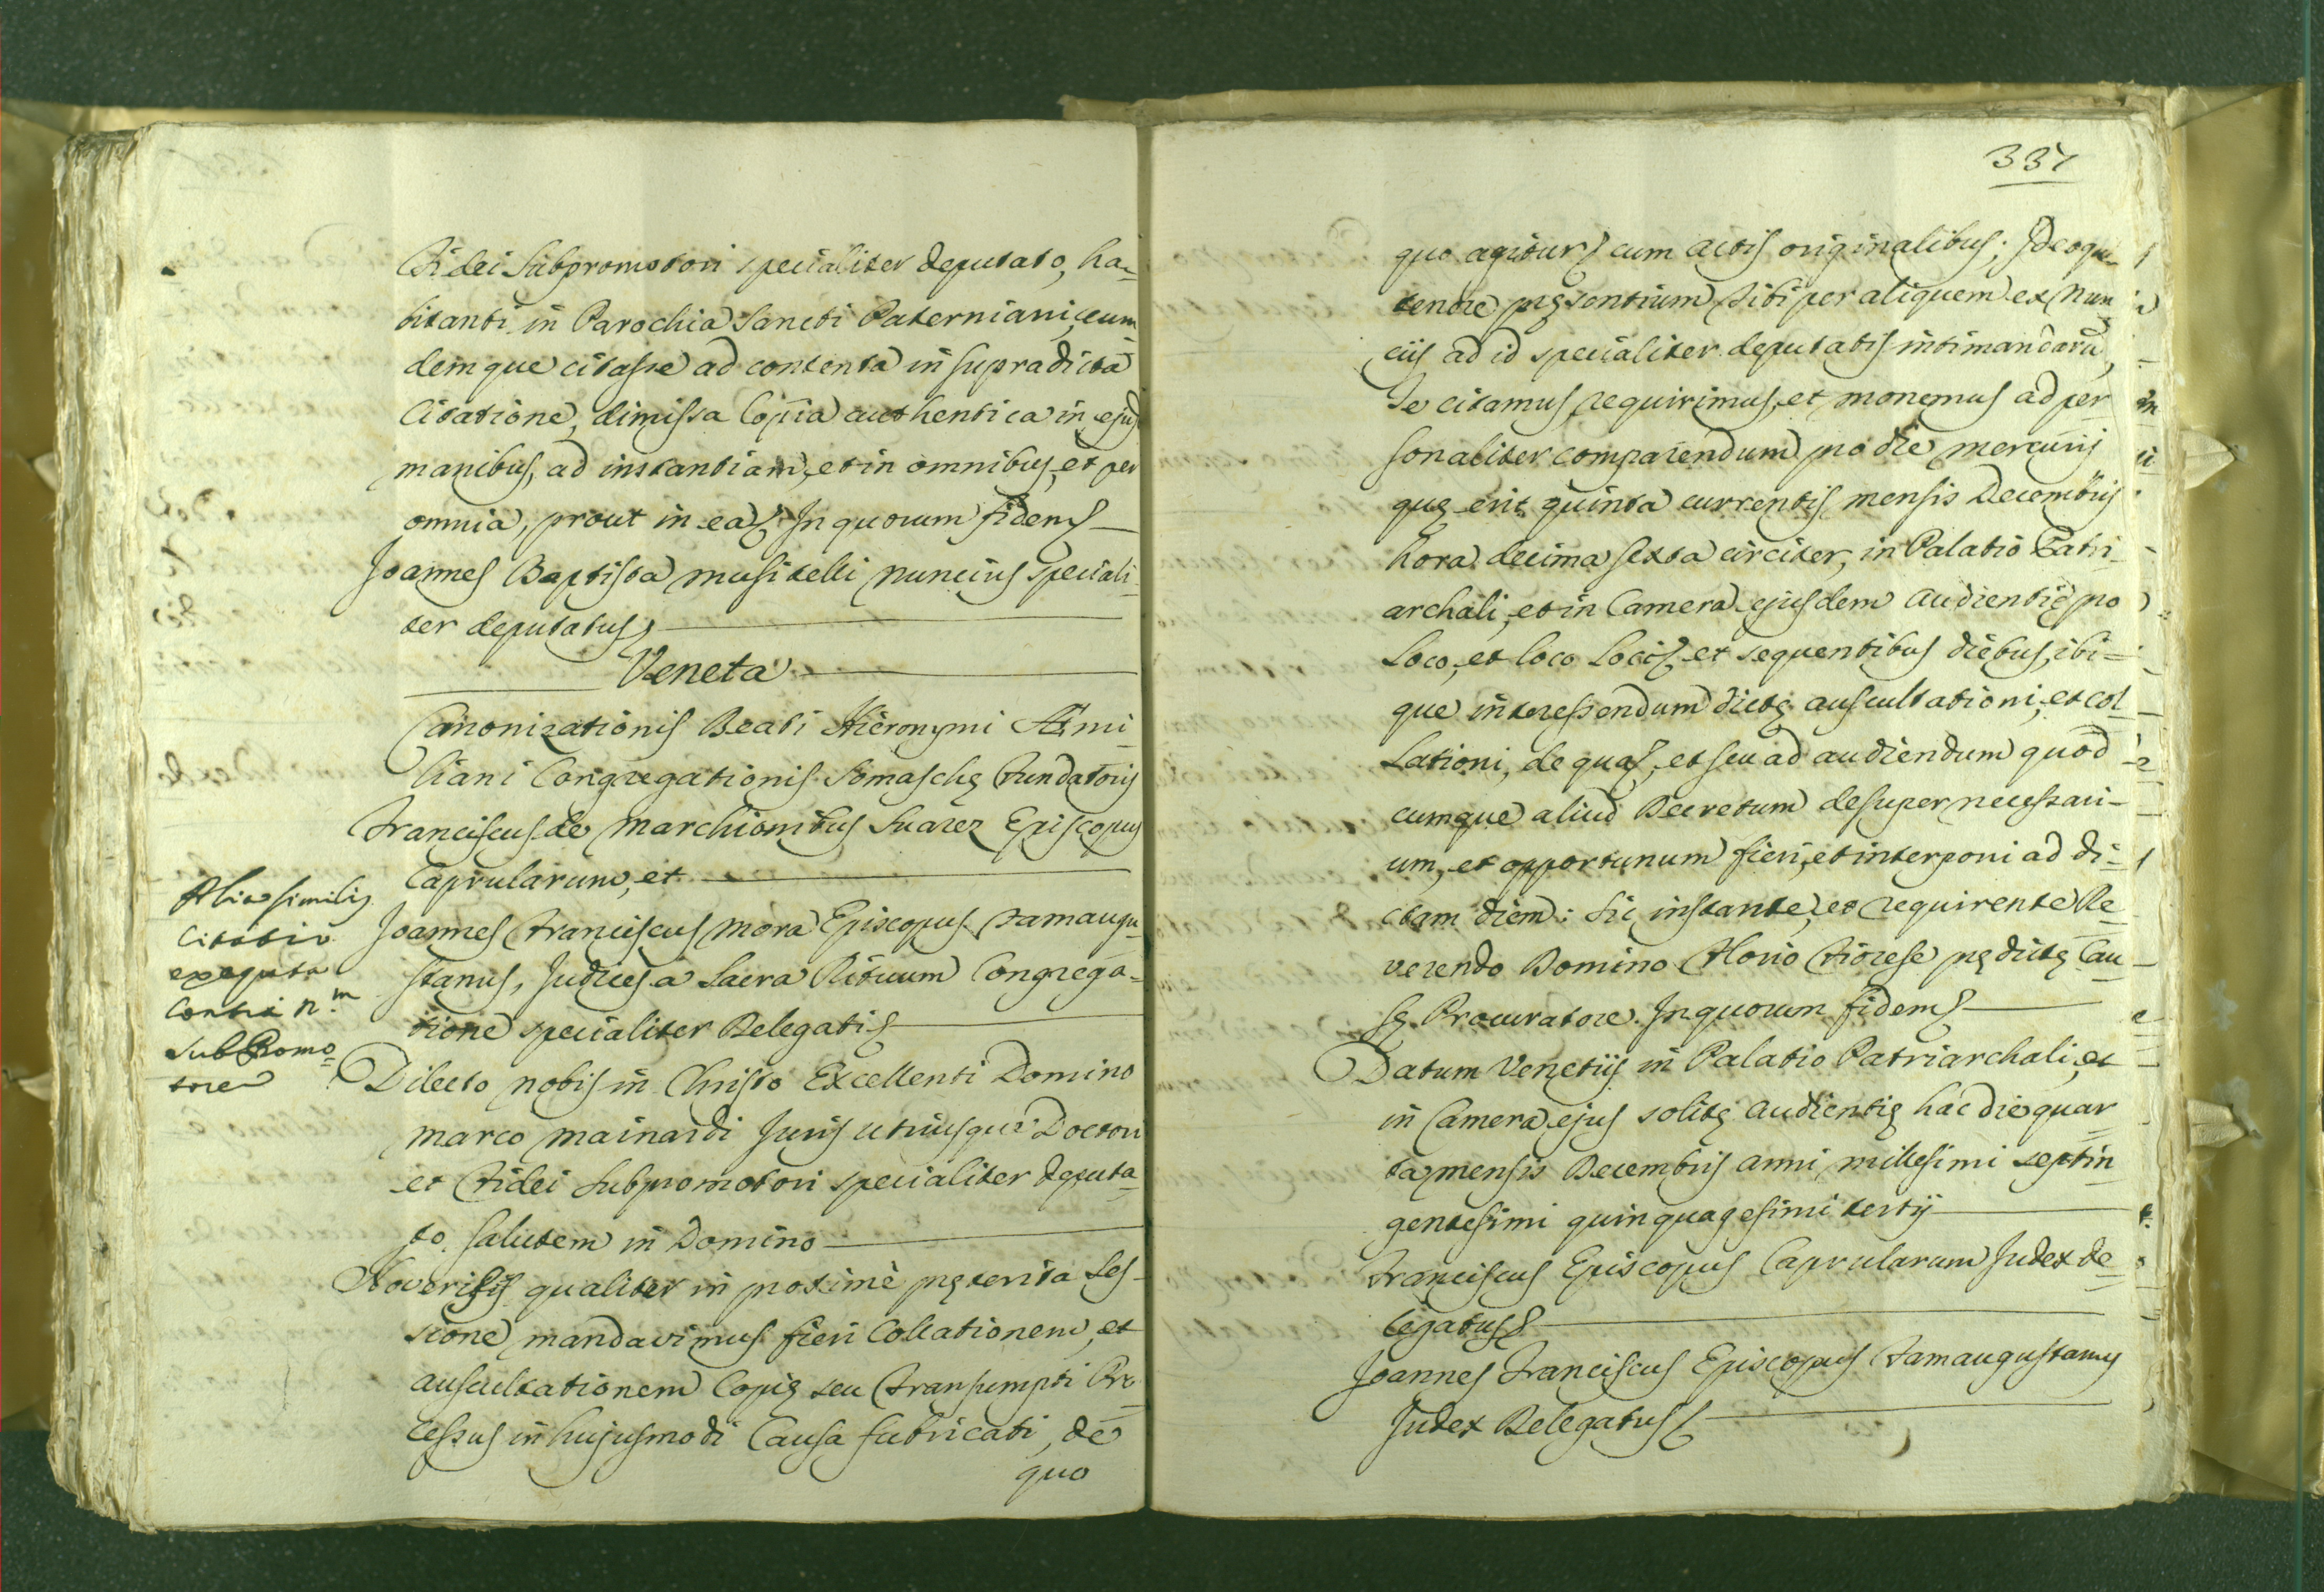 Fidei Subpromotori specialiter deputato, ha-
bitanti in Parochia Sancti Paterniani, eum
demque citasse ad contenta in supradicta
Citatione, dimissa Copia authentica in ejus
manibus, ad instantiam, et in omnibus, et per
omnia, prout in ea. In quorum fidem
Joannes Baptista Musitelli Nuncius Speciali-
ter deputatus
Veneta
Canonizationis Beati Hieronymi Æmi-
liani Congregationis Somaschę Fundatoris
Franciscus de Marchionibus Suarez Episcopus
Caprularum, et
Joannes Franciscus Mora Episcopus Famaugu-
stanus, Judices a Sacra Rituum Congrega-
tione specialiter Delegati
Dilecto nobis in Christo Excellenti Domino
Marco Mainardi Juris utriusque Doctori
et Fidei Subpromotori specialiter deputa-
to. Salutem in Domino
Noveritis qualiter in proximè pręterita Ses-
sione mandavimus fieri Collationem, et
auscultationem Copię seu Transumpti Pro-
cessus in hujusmodi Causa fabricati, de
quo
Alia similis
Citatio
exequta
Contra R.m
SubPromo-
torem
337
quo agitur cum actis originalibus; Ideoque
tenore pręsentium tibi per aliquem ex Nun
ciis ad id specialiter deputatis intimandarũ
Te citamus, requirimus, et monemus ad per
sonaliter comparendum pro die Mercurij
quę erit quinta currentis mensis Decembris
hora decima sexta circiter, in Palatio Patri-
archali, et in Camera ejusdem Audientię pro
Loco, et loco Loci, et sequentibus diebus, ibi-
que interessendum dictę auscultationi, et col-
lationi, de qua, et seu ad audiendum quod
cumque aliud Decretum desuper necessari-
um, et opportunum fieri, et interponi ad di-
ctam diem: Sic instante, et requirente Re
verendo Domino Floriο Fiorese prędictę Cau-
sę Procuratore. In quorum fidem
Datum Venetijs in Palatio Patriarchali, et
in Camera ejus solitę Audientię hac die quar
ta mensis Decembris anni millesimi septin
gentesimi quinquagesimi tertij
Franciscus Episcopus Caprularum Judex de-
legatus
Joannes Franciscus Episcopus Famaugustanus
Judex Delegatus